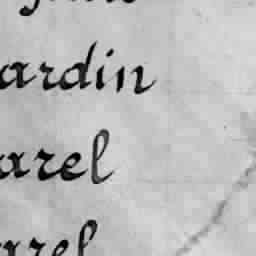 ardin
arel
arel